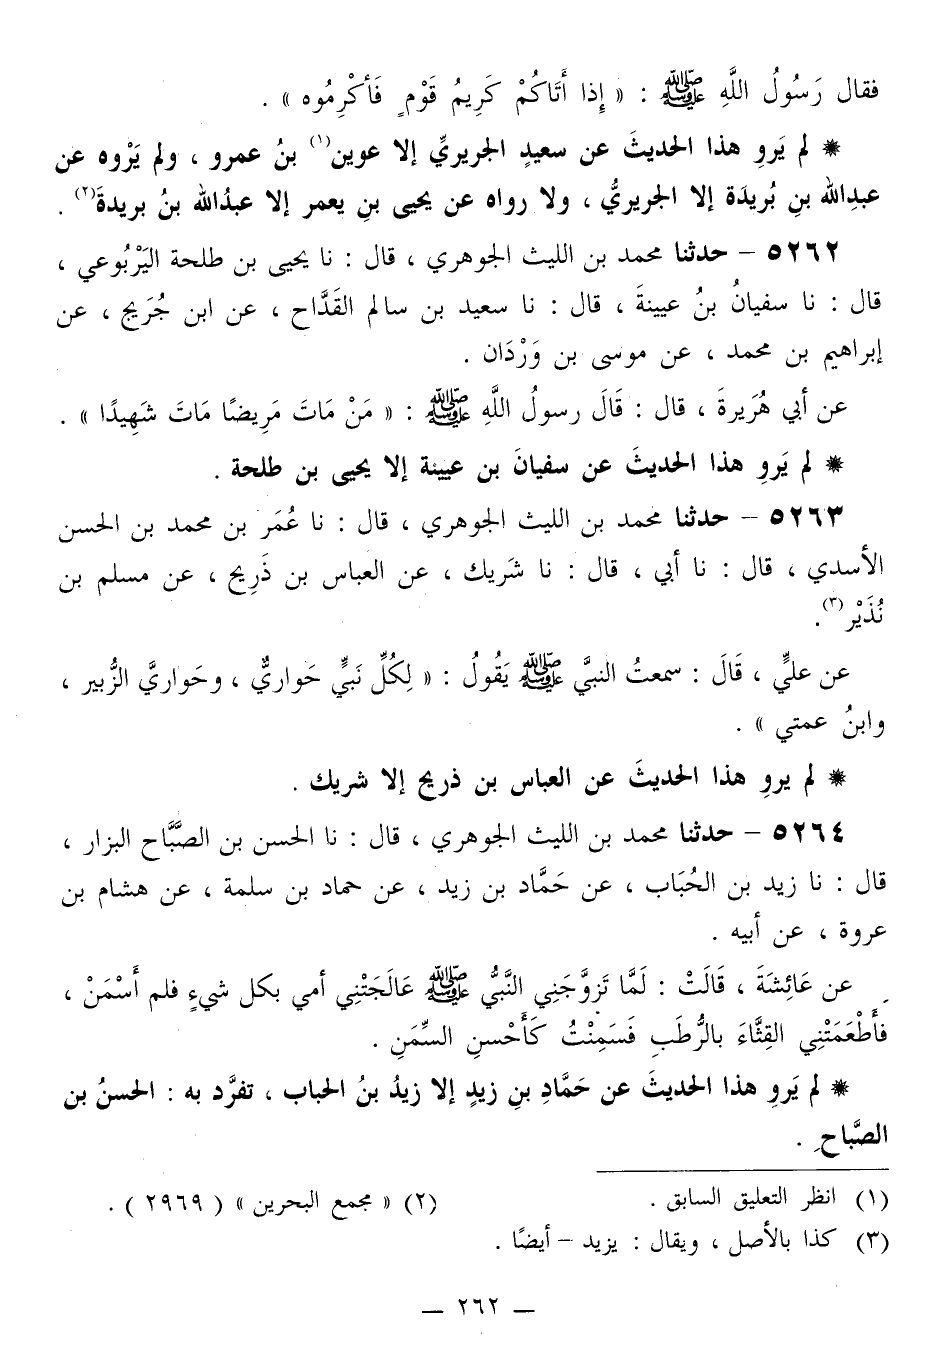 فقال رَسُولُ اللَّهِ ﷺ : « إِذا أَتَاكُمْ كَرِيمُ قَوْمٍ فَأكْرِمُوه » .
* لم يَروِ هذا الحديثَ عن سعيدٍ الجريريِّ إلا عوين(١) بنُ عمرو ، ولم يَرْوه عن
عبدِالله بنِ بُريدَة إلا الجريريُّ ، ولا رواه عن يحيى بنِ يعمر إلا عبدُالله بنُ بريدةَ(٢) .
٥٢٦٢ – حدثنا محمد بن الليث الجوهري ، قال : نا يحيى بن طلحة اليَرْبُوعي ،
قال : نا سفيانُ بنُ عيينةَ ، قال : نا سعيد بن سالم القَدَّاح ، عن ابن جُرَيج ، عن
إبراهيم بن محمد ، عن موسى بن وَرْدَان .
عن أبي هُرَيرةَ ، قال : قَالَ رسولُ اللَّهِ ﷺ : « مَنْ مَاتَ مَرِيضًا مَاتَ شَهِيدًا » .
* لم يَروِ هذا الحديثَ عن سفيانَ بن عيينة إلا يحيى بن طلحة .
٥٢٦٣ – حدثنا محمد بن الليث الجوهري ، قال : نا عُمَر بن محمد بن الحسن
الأسدي ، قال : نا أبي ، قال : نا شَريك ، عن العباس بن ذَرِيح ، عن مسلم بن
نُذَيْر(٣).
عن عليٍّ ، قَالَ : سمعتُ النبيَّ ﷺ يَقُولُ : « لِكُلِّ نَبيٍّ حَواريٌّ ، وحَواريَّ الزُّبير ،
وابنُ عمتي » .
* لم يروِ هذا الحديثَ عن العباس بن ذريح إلا شريك .
٥٢٦٤ – حدثنا محمد بن الليث الجوهري ، قال : نا الحسن بن الصَّبَّاح البزار ،
قال : نا زيد بن الحُبَاب ، عن حَمَّاد بن زيد ، عن حماد بن سلمة ، عن هشام بن
عروة ، عن أبيه .
عن عَائِشَةَ ، قَالَتْ : لَمَّا تَزوَّجَنِي النَّبيُّ ﷺ عَالَجَتْنِي أمي بكل شيءٍ فلم أَسْمَنْ ،
فأَطْعَمَتْنِي القِثَّاءَ بالرُّطَبِ فَسَمِنْتُ كَأَحْسنِ السِّمَنِ .
* لم يَروِ هذا الحديثَ عن حَمَّادِ بنِ زيدٍ إلا زيدُ بنُ الحباب ، تفرَّد به : الحسنُ بن
الصَّباحِ .
(١) انظر التعليق السابق . (٢) « مجمع البحرين » ( ٢٩٦٩ ) .
(٣) كذا بالأصل ، ويقال : يزيد – أيضًا .
— ٢٦٢ —